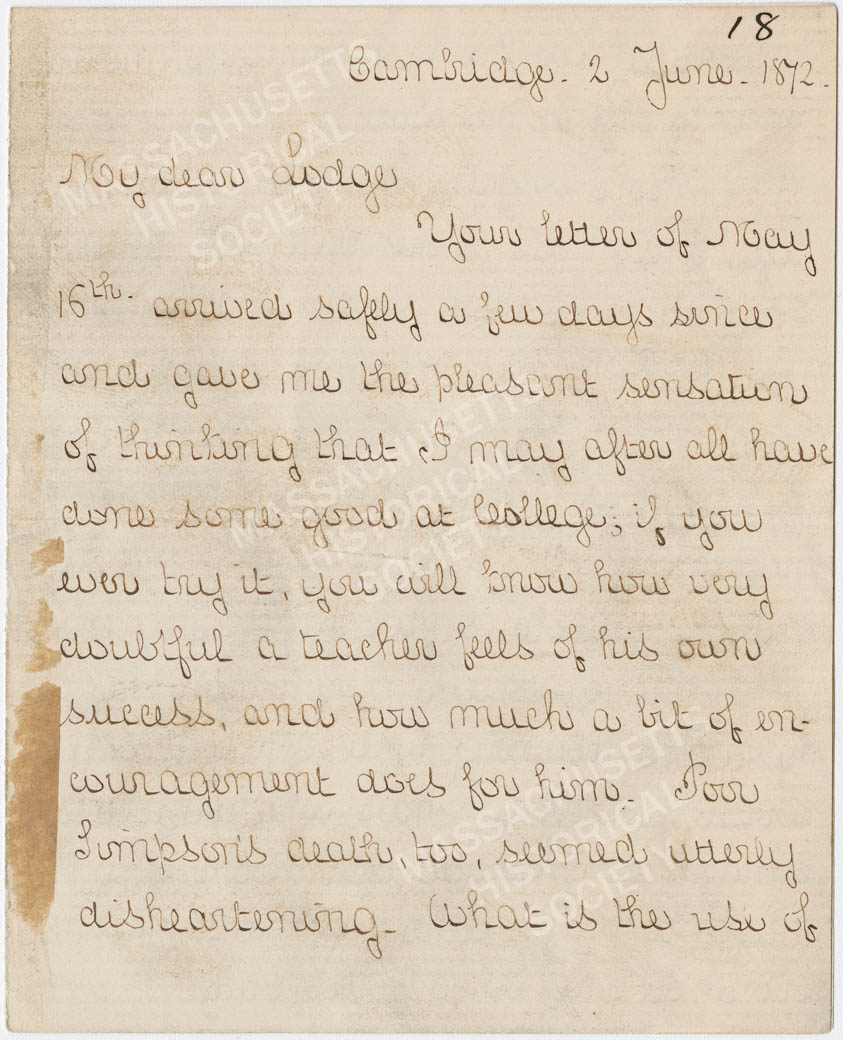 18
Cambridge. 2 June. 1872.
My dear Lodge
Your letter of May
16th. arrived safely a few days since
and gave me the pleasant sensation
of thinking that I may after all have
done some good at College; if you
ever try it, you will know how very
doubtful a teacher feels of his own
success, and how much a bit of en-
couragement does for him. Poor
Simpson's death, too, seemed utterly
disheartening. What is the use of
MASSACHUSETTS
HISTORICAL
SOCIETY
MASSACHUSETTS
HISTORICAL
SOCIETY
MASSACHUSETTS
HISTORICAL
SOCIETY